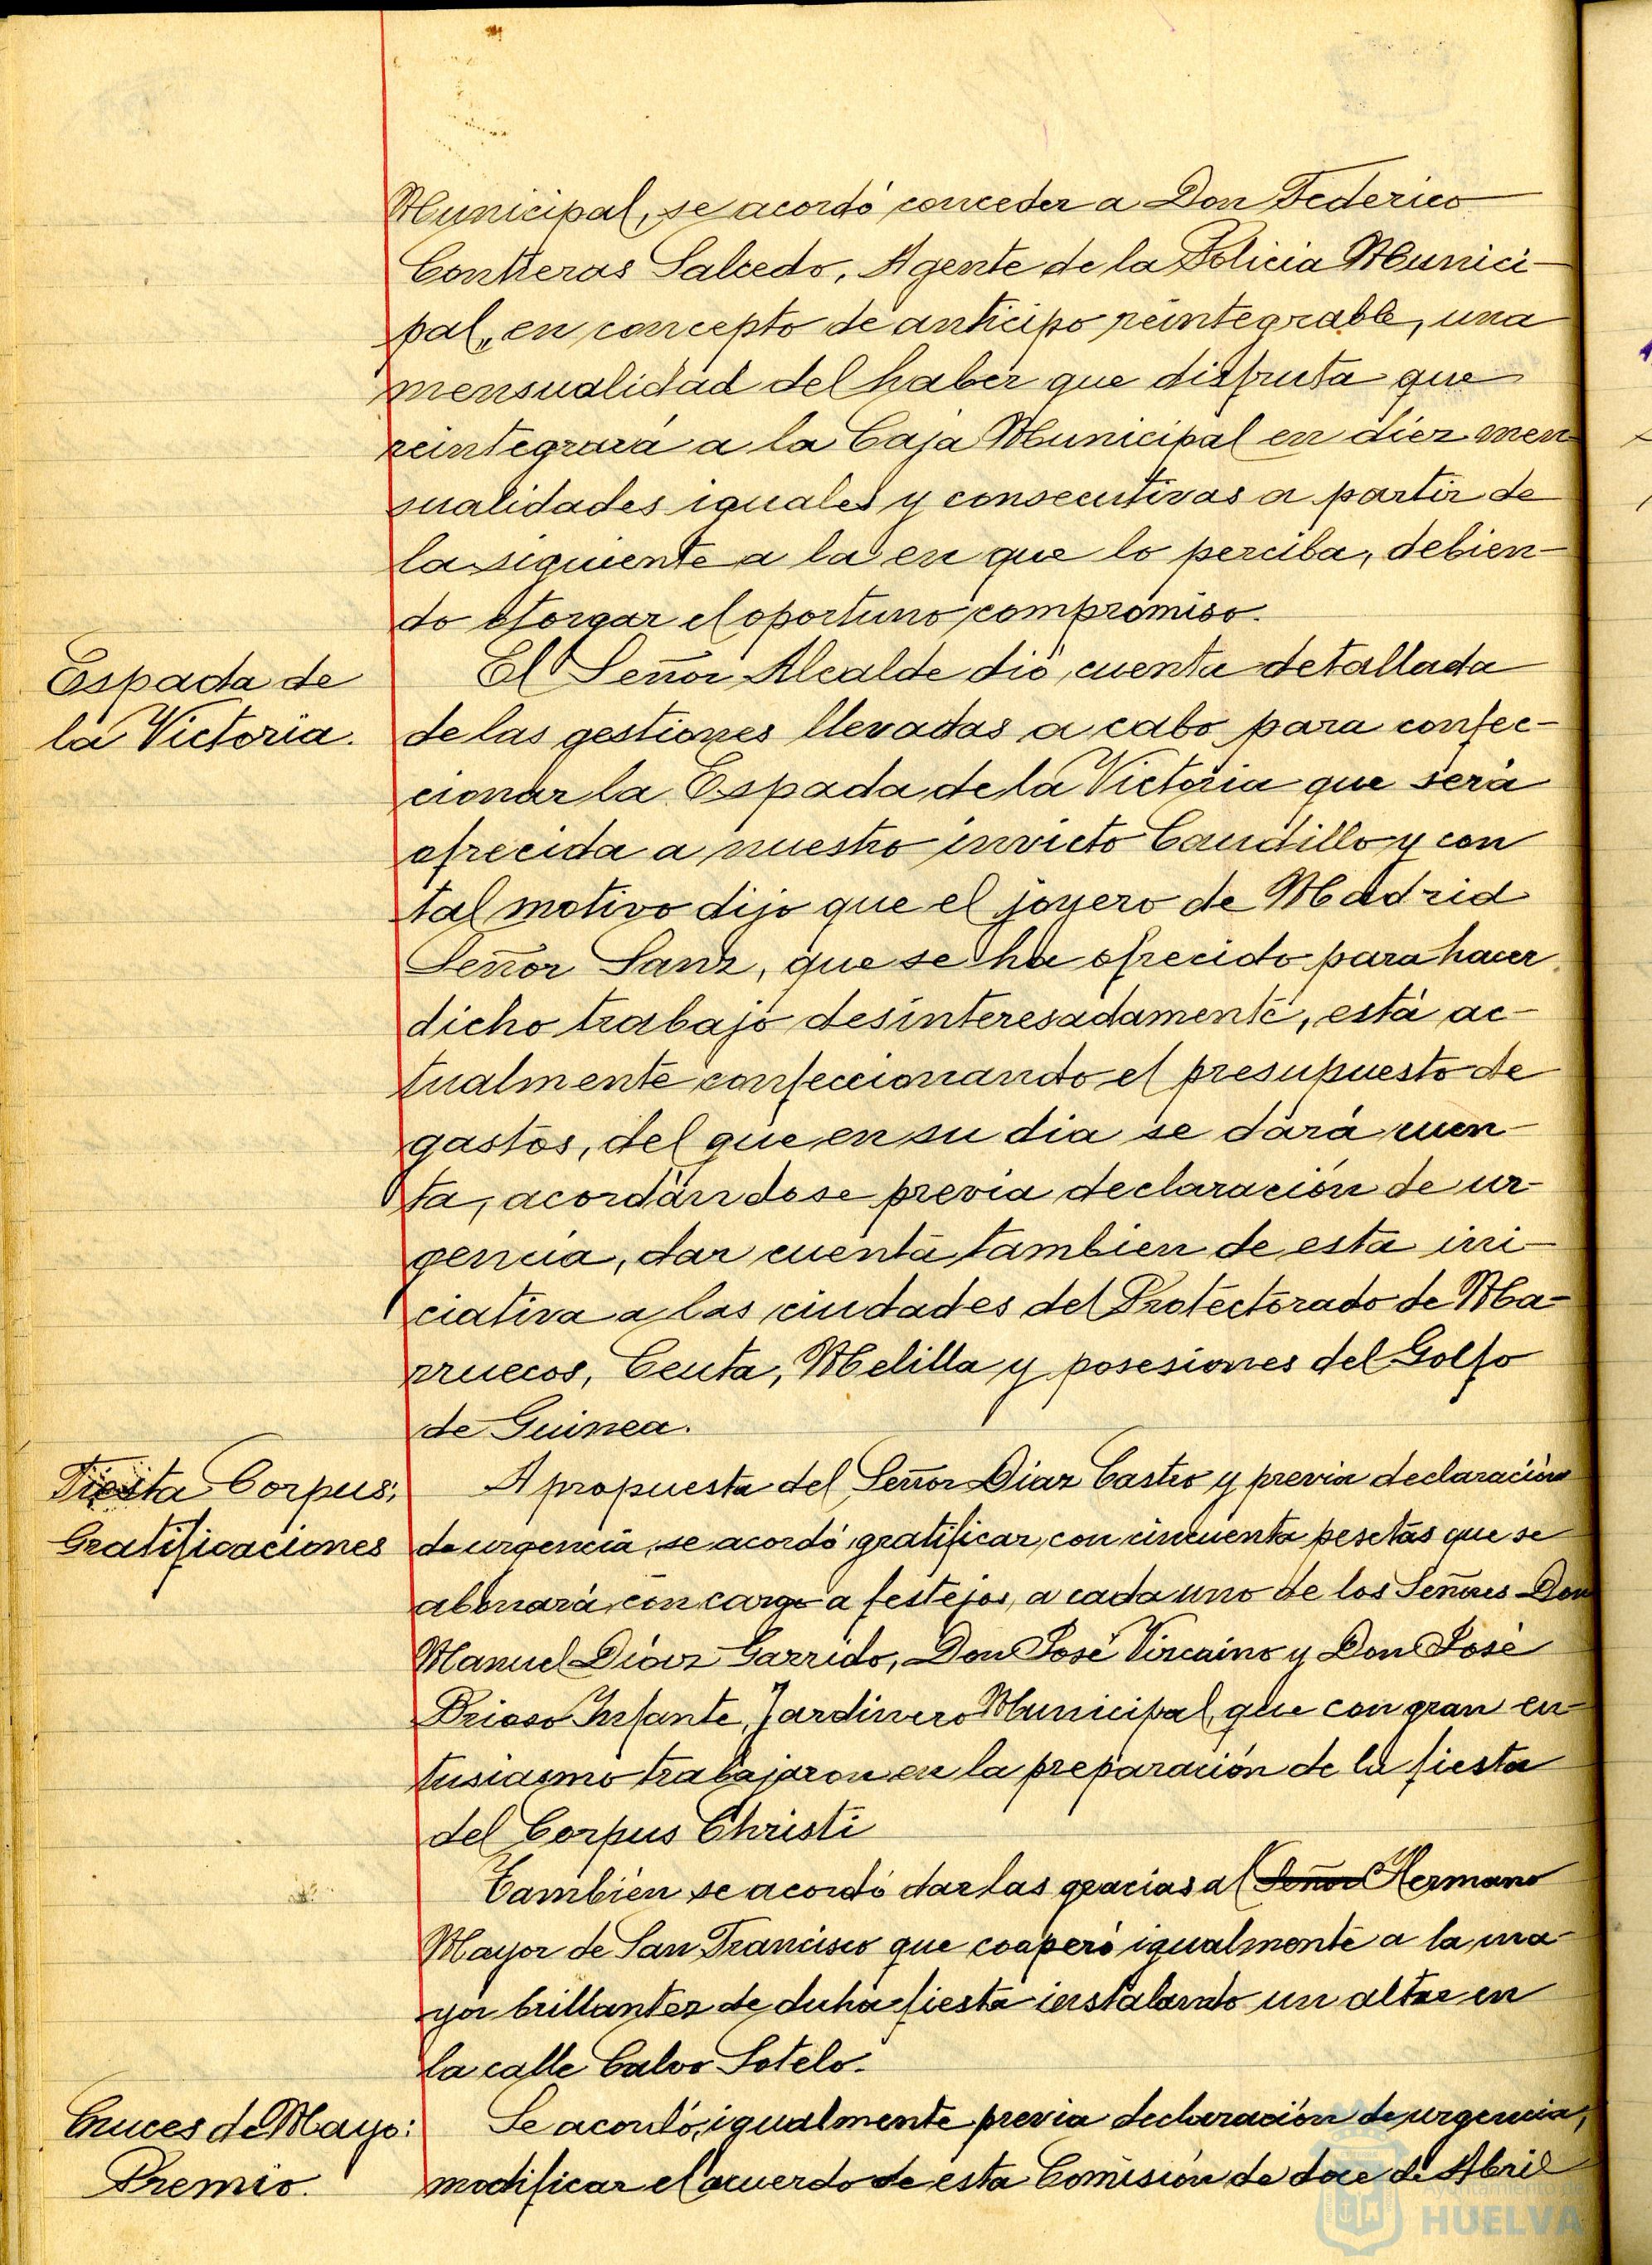 Municipal, se acordó conceder a Don Federico
Contreras Salcedo, Agente de la Policia Munici-
pal, en concepto de anticipo reintegrable, una
mensualidad del haber que disfruta que
reintegrará a la Caja Municipal en diez men-
sualidades iguales y consecutivas a partir de
la siguiente a la en que lo perciba, debien-
do otorgar el oportuno compromiso.
Espada de
la Victoria.
El Señor Alcalde dió cuenta detallada
de las gestiones llevadas a cabo para confec-
cionar la Espada de la Victoria que será
ofrecida a nuestro invicto Caudillo y con
tal motivo dijo que el joyero de Madrid
Señor Sanz, que se ha ofrecido para hacer
dicho trabajo desinteresadamente, está ac-
tualmente confeccionando el presupuesto de
gastos, del que en su dia se dará cuen-
ta, acordándose previa declaración de ur-
gencia, dar cuenta tambien de esta ini-
ciativa a las ciudades del Protectorado de Ma-
rruecos, Ceuta, Melilla y posesiones del Golfo
de Guinea.
Fiesta Corpus;
Gratificaciones
A propuesta del Señor Diaz Castro y previa declaración
de urgencia, se acordó gratificar, con cincuenta pesetas que se
abonará con cargo a festejos, a cada uno de los Señores Don
Manuel Díaz Garrido, Don José Vizcaino y Don José
Prioso Infante, Jardinero Municipal, que con gran en-
tusiasmo trabajaron en la preparación de la fiesta
del Corpus Christi
También se acordó dar las gracias al Señor Hermano
Mayor de San Francisco que cooperó igualmente a la ma-
yor brillantez de dicha fiesta instalando un altar en
la calle Calvo Sotelo.
Cruces de Mayo:
Premio.
Se acordó, igualmente previa declaración de urgencia,
modificar el acuerdo de esta Comisión de doce de Abril
Ayuntamiento de
HUELVA